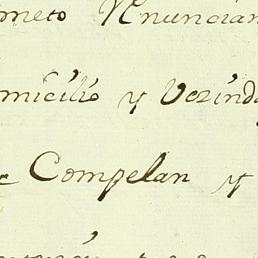 meto Rnuncian
omicilio y Vezind
Compelan y